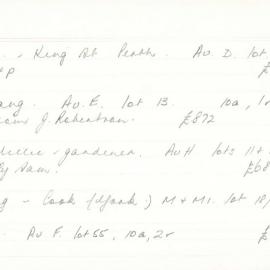 . - King St Perth. Av. D. lot
p £
ang. Av. E. lot 13. 10a, 1r
J. Robertson. £872
- gardener. Av H lots 11 +
Sam. £68
g - Cook ( ) M + M1. lot 18/
. Av F. lot 55, 10a, 2r £